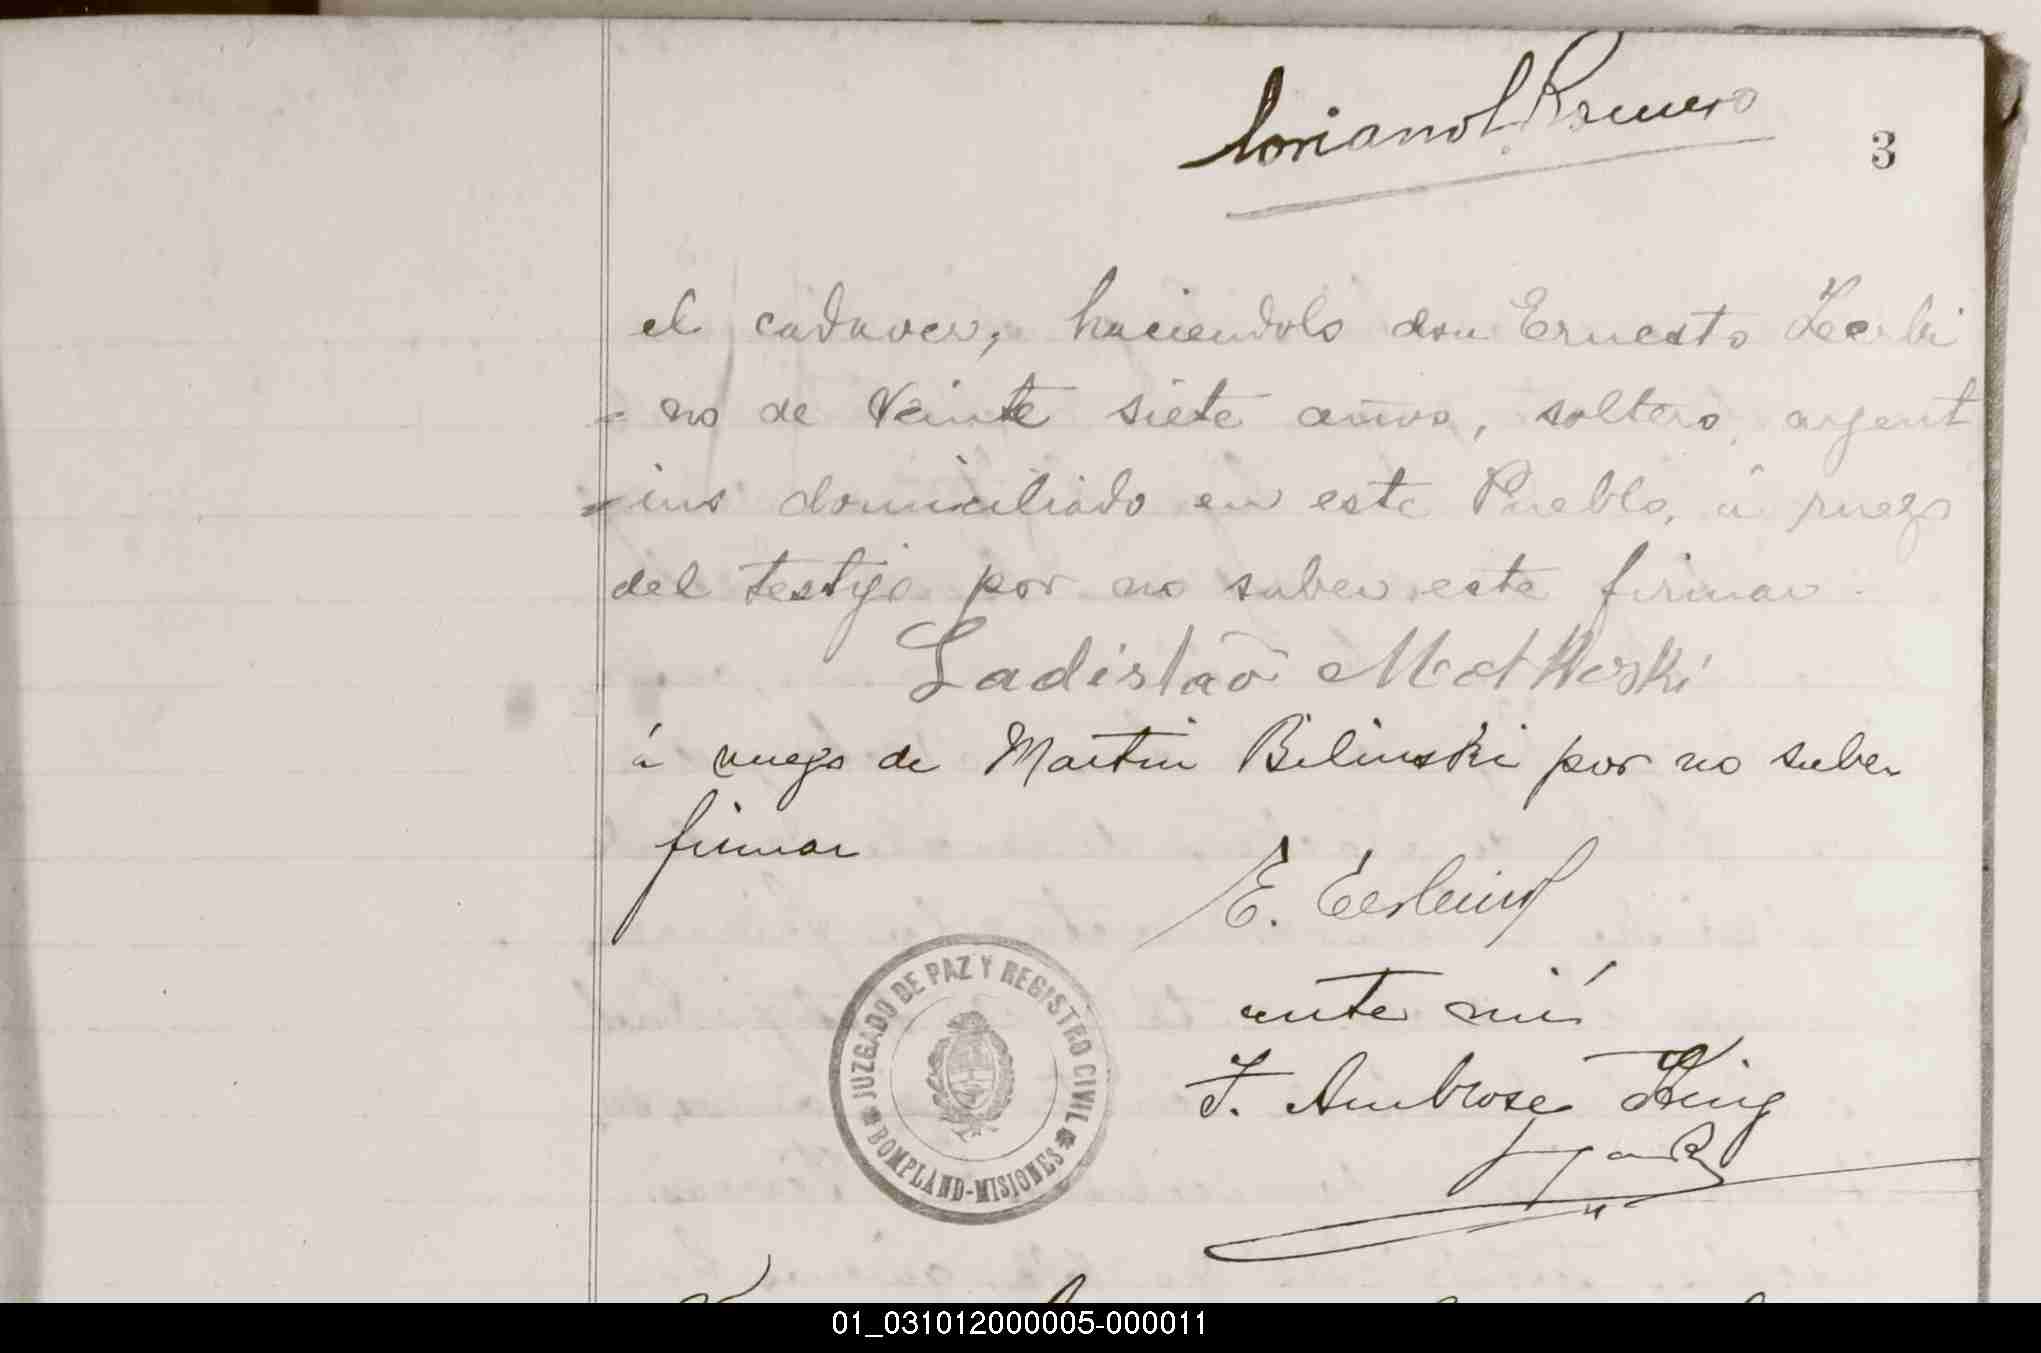 Romero
3
el cadaver, haciendolo don Ernesto Zerbi
= no de veinte siete años, soltero, argent
= ino domiciliado en este Pueblo, á ruego
del testigo por no saber este firmar
Ladislao
á ruego de Martin Bilinski por no saber
firmar
E. Zerbino
ante mí
F. Ambrose King
JUZGADO DE PAZ Y REGISTRO CIVIL
BOMPLAND-MISIONES
01_031012000005-000011